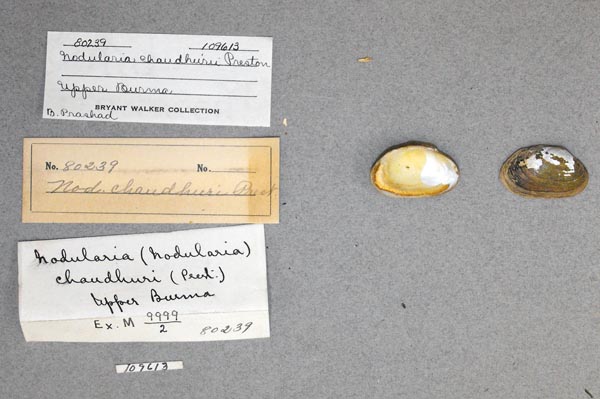 80239 109613
Nodularia chaudhurii Preston
Upper Burma
BRYANT WALKER COLLECTION
B. Prashad
No. 80239 No.
Nod. chaudhuri Prest
Nodularia (Nodularia)
chaudhuri (Prest.)
Upper Burma
Ex. M 9999/2 80239
109613